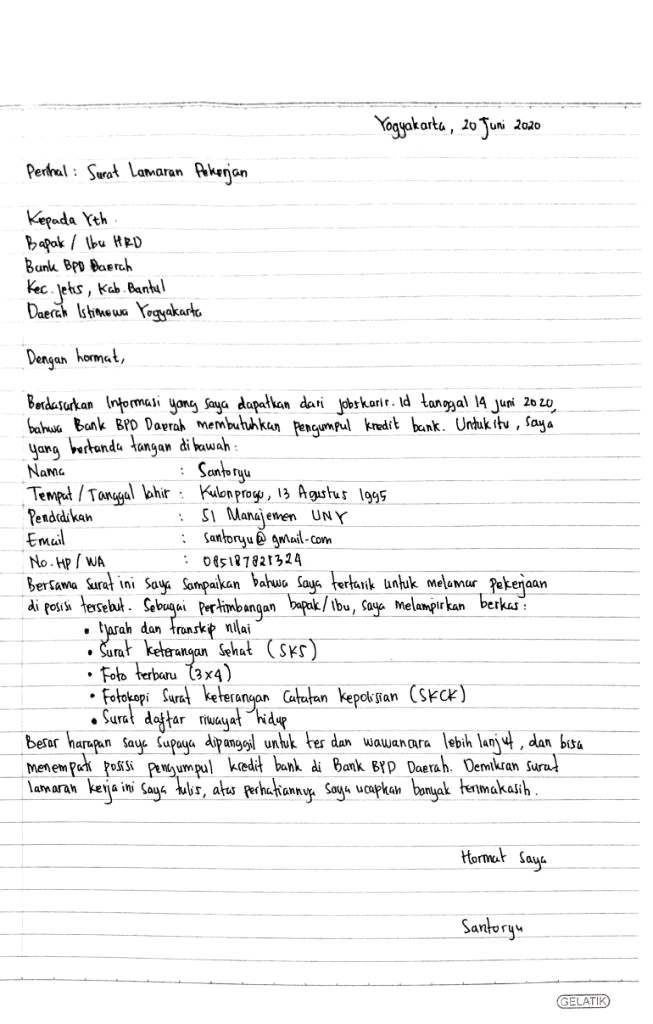 Yogyakarta, 20 Juni 2020
Perihal : Surat Lamaran Pekerjan
Kepada Yth.
Bapak / Ibu HRD
Bank BPD Daerah
Kec. Jetis, Kab. Bantul
Daerah Istimewa Yogyakarta
Dengan hormat,
Berdasarkan Informasi yang saya dapatkan dari jobskarir.id tanggal 14 juni 2020,
bahwa Bank BPD Daerah membutuhkan pengumpul kredit bank. Untuk itu, saya
yang bertanda tangan dibawah :
Nama : Santoryu
Tempat / Tanggal lahir : Kulonprogo, 13 Agustus 1995
Pendidikan : S1 Manajemen UNY
Email : Santoryu@gmail.com
No. HP / WA : 085187821324
Bersama surat ini saya sampaikan bahwa saya tertarik untuk melamar pekerjaan
di posisi tersebut. Sebagai pertimbangan bapak/ibu, saya melampirkan berkas :
• Ijazah dan transkip nilai
• Surat keterangan Sehat (SKS)
• Foto terbaru (3x4)
• Fotokopi Surat keterangan Catatan Kepolisian (SKCK)
• Surat daftar riwayat hidup
Besar harapan saya supaya dipanggil untuk tes dan wawancara lebih lanjut, dan bisa
menempati posisi pengumpul kredit bank di Bank BPD Daerah. Demikian surat
lamaran kerja ini saya tulis, atas perhatiannya saya ucapkan banyak terimakasih.
Hormat saya
Santoryu
GELATIK